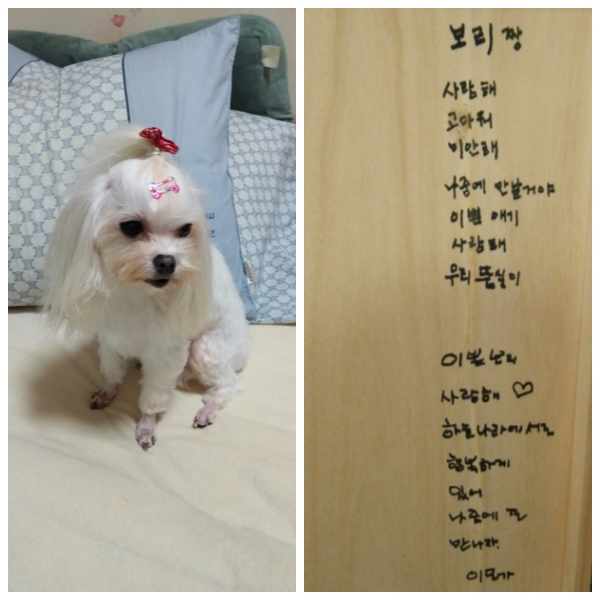 보리짱
사랑해
고마워
미안해
나중에 만날거야
이쁜 애기
사랑해
우리 똘실이
이쁜보리
사랑해 ♡
하늘나라에서도
행복하게
있어
나중에 꼭
만나자.
이모가